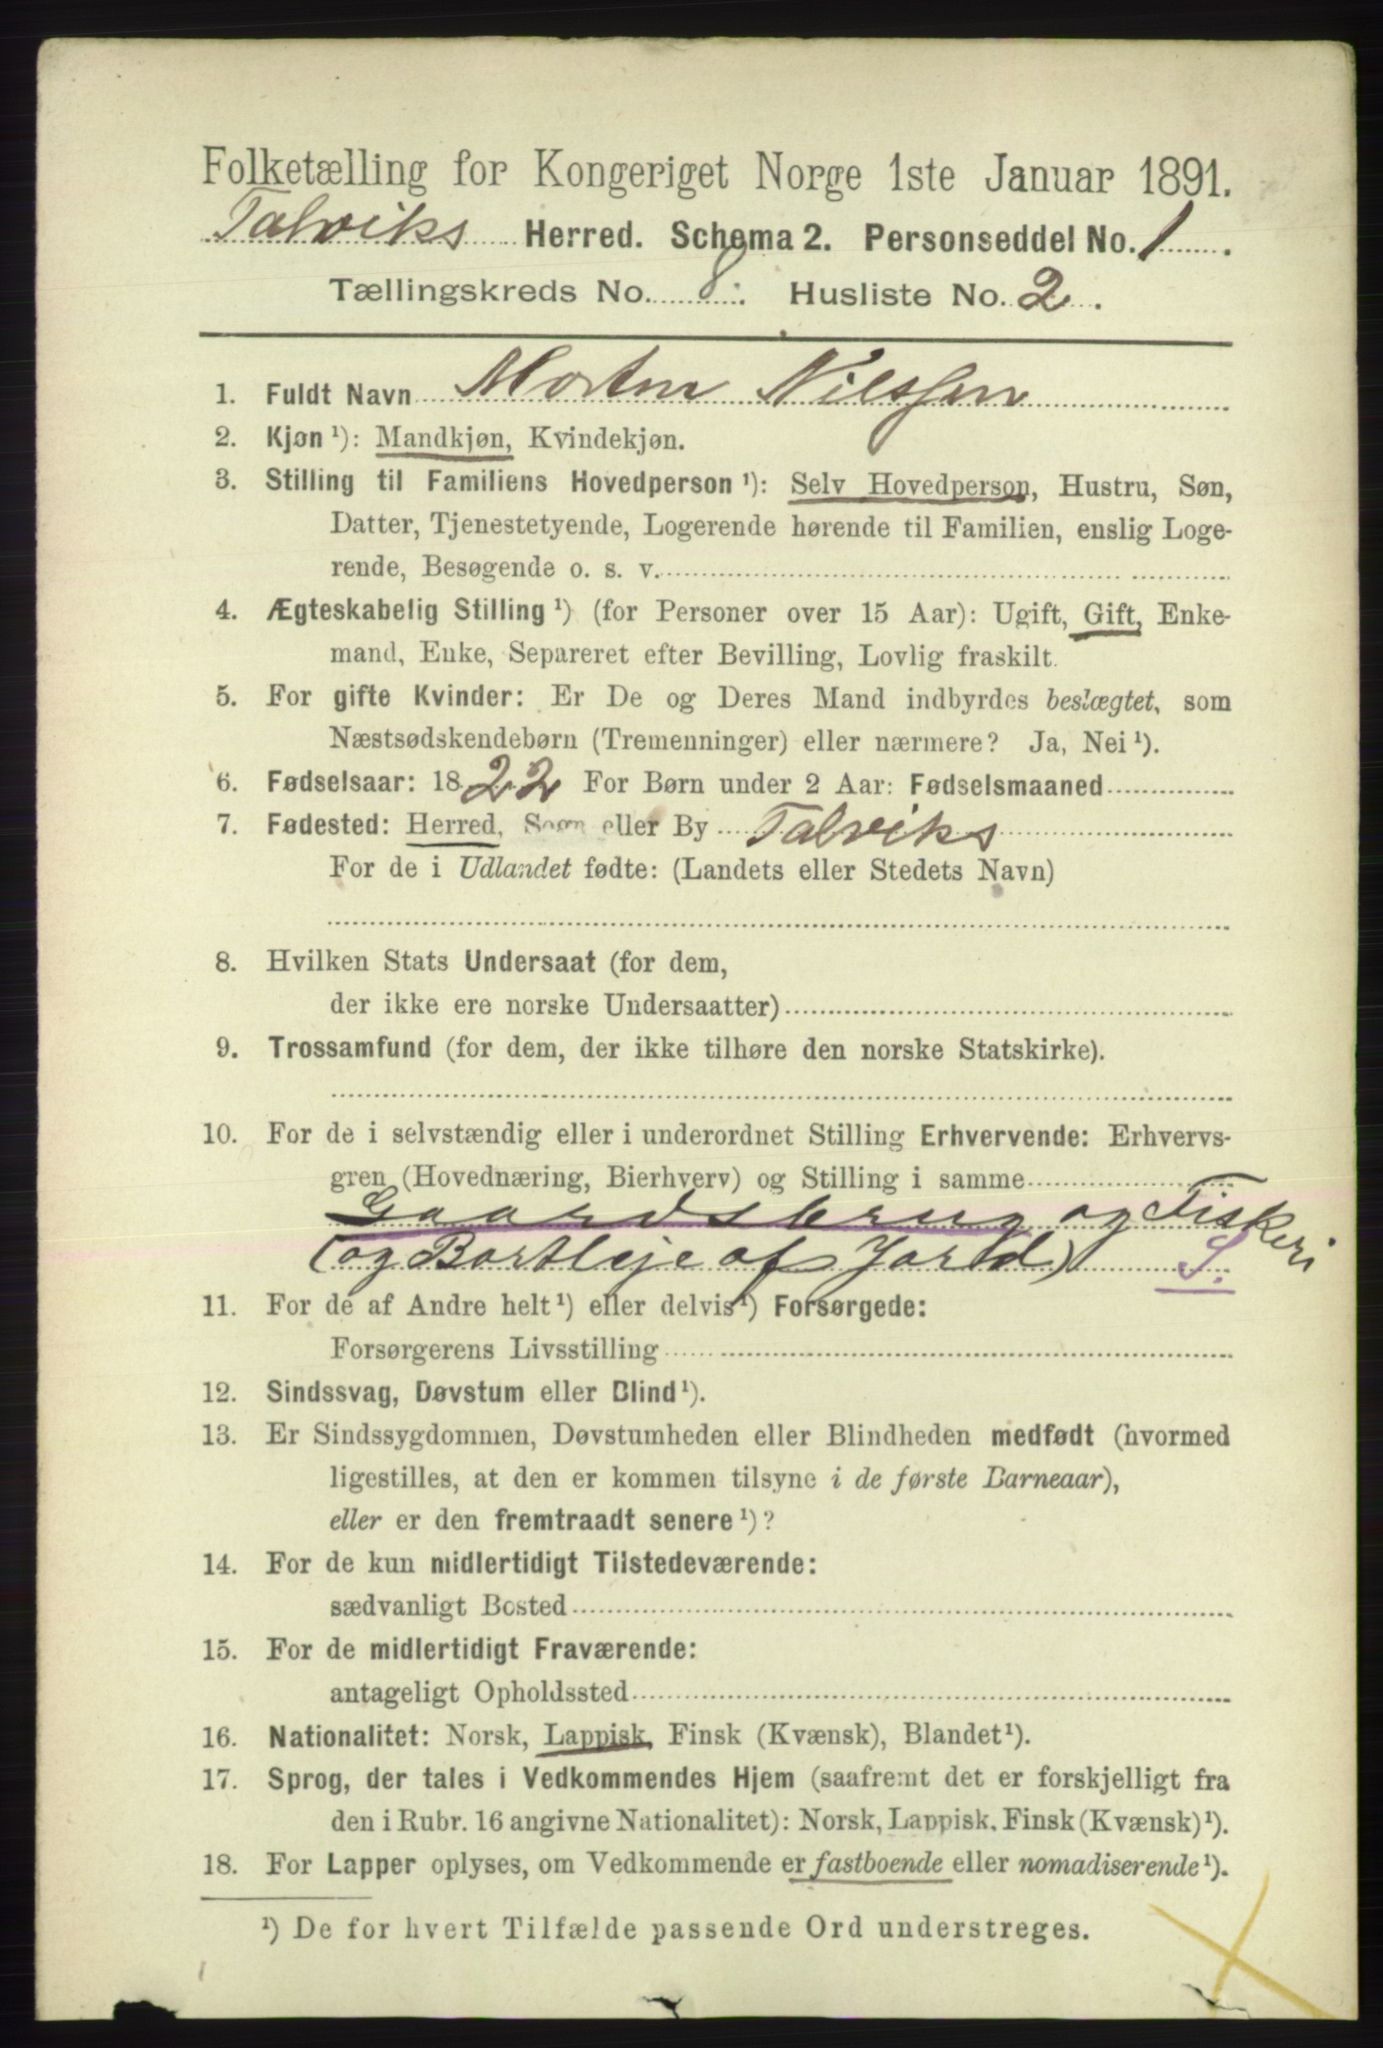 Folketælling for Kongeriget Norge 1ste Januar 1891.
Talviks Herred. Schema 2. Personseddel No. 1.
Tællingskreds No. 8. Husliste No. 2.
1. Fuldt Navn Morten Nilssen
2. Kjøn ¹): Mandkjøn, Kvindekjøn.
3. Stilling til Familiens Hovedperson ¹): Selv Hovedperson, Hustru, Søn,
Datter, Tjenestetyende, Logerende hørende til Familien, enslig Loge-
rende, Besøgende o. s. v.
4. Ægteskabelig Stilling ¹) (for Personer over 15 Aar): Ugift, Gift, Enke-
mand, Enke, Separeret efter Bevilling, Lovlig fraskilt.
5. For gifte Kvinder: Er De og Deres Mand indbyrdes beslægtet, som
Næstsødskendebørn (Tremenninger) eller nærmere? Ja, Nei ¹).
6. Fødselsaar: 1822 For Børn under 2 Aar: Fødselsmaaned
7. Fødested: Herred, Sogn eller By Talviks
For de i Udlandet fødte: (Landets eller Stedets Navn)
8. Hvilken Stats Undersaat (for dem,
der ikke ere norske Undersaatter)
9. Trossamfund (for dem, der ikke tilhøre den norske Statskirke).
10. For de i selvstændig eller i underordnet Stilling Erhvervende: Erhvervs-
gren (Hovednæring, Bierhverv) og Stilling i samme
Gaardsbrug og Fiskeri
(og Bortleje af Jord) S.
11. For de af Andre helt ¹) eller delvis ¹) Forsørgede:
Forsørgerens Livsstilling
12. Sindssvag, Døvstum eller Blind ¹).
13. Er Sindssygdommen, Døvstumheden eller Blindheden medfødt (hvormed
ligestilles, at den er kommen tilsyne i de første Barneaar),
eller er den fremtraadt senere ¹)?
14. For de kun midlertidigt Tilstedeværende:
sædvanligt Bosted
15. For de midlertidigt Fraværende:
antageligt Opholdssted
16. Nationalitet: Norsk, Lappisk, Finsk (Kvænsk), Blandet ¹).
17. Sprog, der tales i Vedkommendes Hjem (saafremt det er forskjelligt fra
den i Rubr. 16 angivne Nationalitet): Norsk, Lappisk, Finsk (Kvænsk) ¹).
18. For Lapper oplyses, om Vedkommende er fastboende eller nomadiserende ¹).
¹) De for hvert Tilfælde passende Ord understreges.